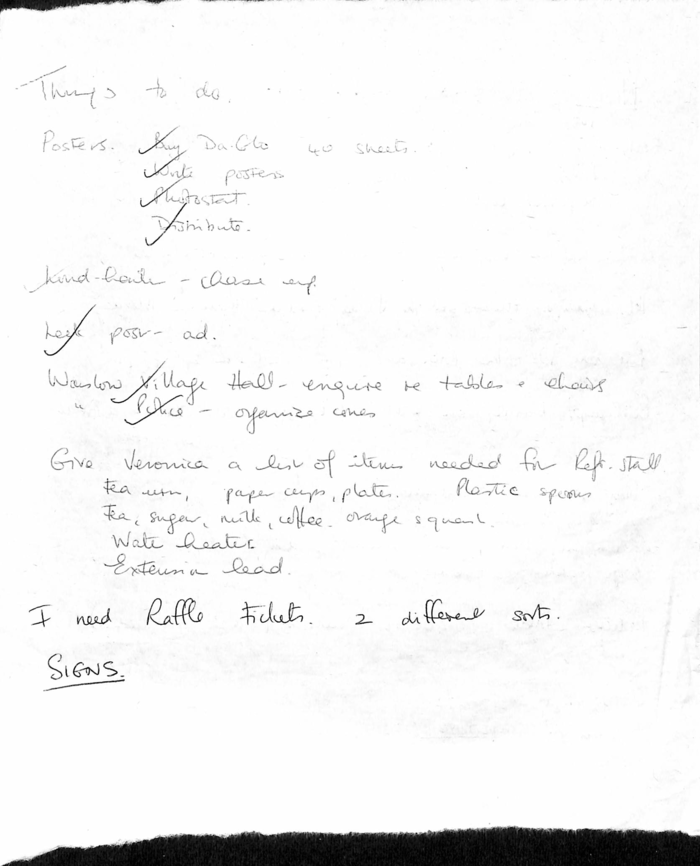 Things to do.
Posters. Buy Da-Glo 40 sheets.
Write posters
Photostat.
Distribute.
- chase up
Leek post - ad.
Warslow Village Hall - enquire re tables + chairs
" Police - organize cones
Give Veronica a list of items needed for Refr. stall
Tea urn, paper cups, plates. Plastic spoons
Tea, sugar, milk, coffee. orange squash.
Water heater
Extension lead.
I need Raffle tickets. 2 different sorts.
SIGNS.